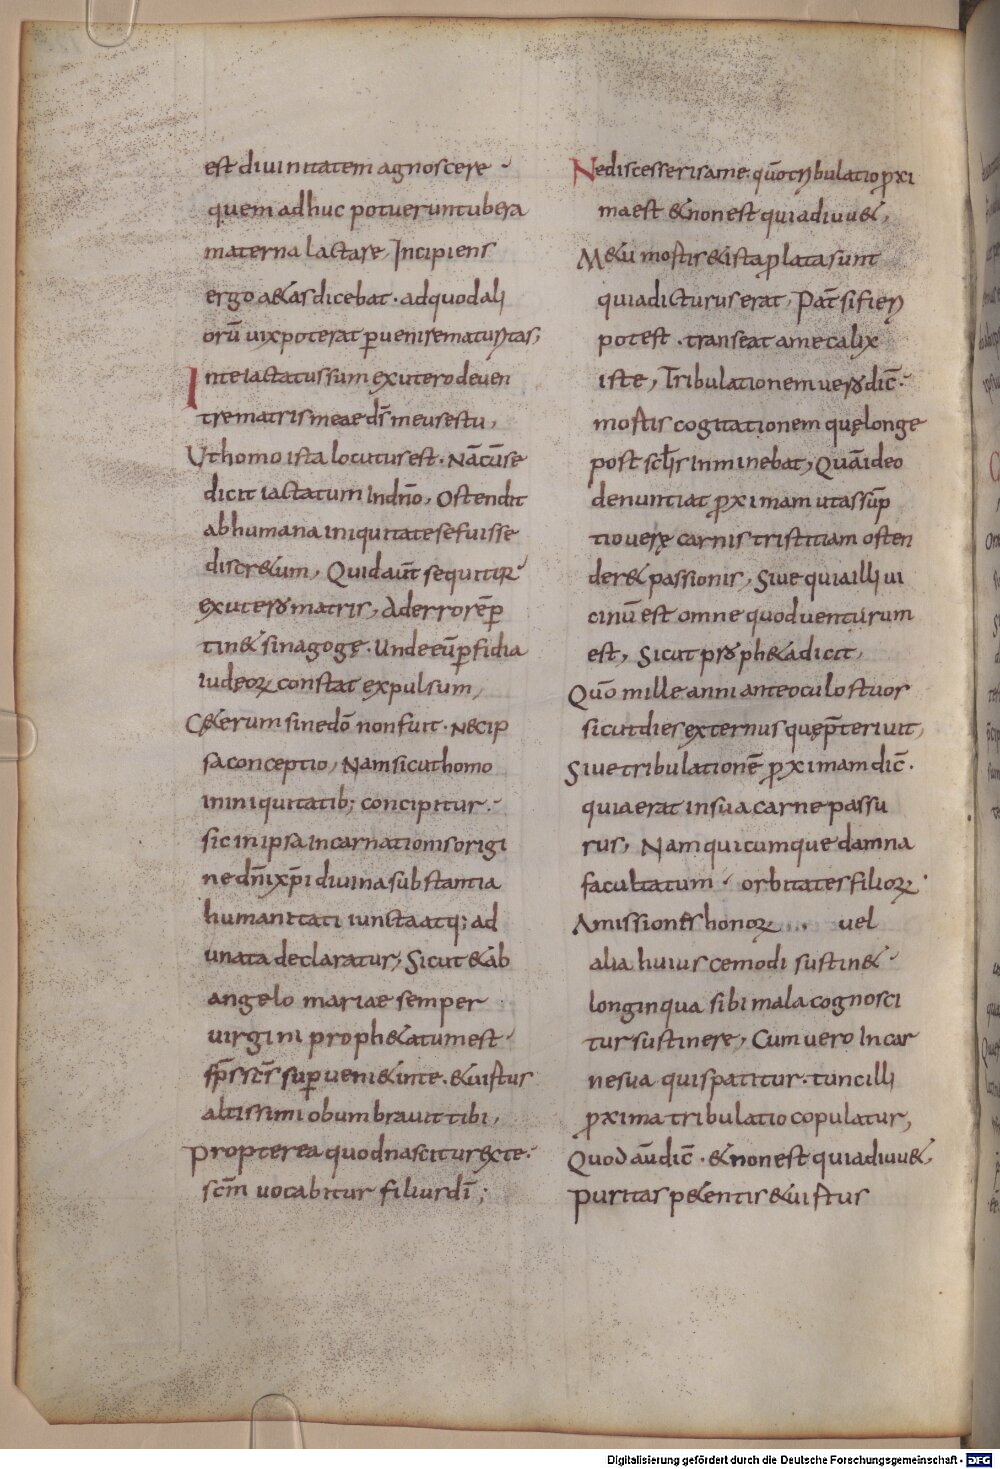 est diuinitatem agnoscere ·
quem adhuc potuerunt ubera
materna lactare, Incipiens
ergo a&as dicebat · ad quod ali
orū uix poterat ꝑuenire maturitas,
In te iactatus sum ex utero de uen
tre matris meae ds̄ meus es tu,
Ut homo ista locutus est · Nā cū se
dicit iactatum in dn̄o, Ostendit
ab humana iniquitate se fuisse
discr&um, Quid aūt sequitur
ex utero matris, Ad errorē ꝑ
tin& sinagogę · Unde eū ꝑfidia
iudęoꝝ constat expulsum,
C&erum sine dō non fuit · nec ip
sa conceptio, Nam sicut homo
in iniquitatib; concipitur ·
sic in ipsa incarnationis origi
ne dn̄i xp̄i diuina substantia
humanitati iuncta atq; ad
unata declaratur, Sicut & ab
angelo mariae semper
uirgini proph&atum est ·
sp̄s sc̄s suꝑueni& in te · & uirtus
altissimi obumbrauit tibi,
Propterea quod nascitur ex te ·
sc̄m uocabitur filius dī;
Ne discesseris a me · quō tribulatio ꝓxi
ma est & non est qui adiuu&,
M&u mortis & ista ꝓlata sunt
quia dicturus erat, Pat̄ si fieri
potest · transeat a me calix
iste, Tribulationem uero dic̄ ·
mortis cogitationem quę longe
post scl̄is inminebat, Quā ideo
denuntiat ꝓximam ut assūp
tio uerę carnis tristitiam osten
der& passionis, Siue quia illi ui
cinū est omne quod uenturum
est, Sicut proph&a dicit,
Quō mille anni ante oculos tuos
sicut dies externus quę p̄teriuit,
Siue tribulationē ꝓximam dic̄ ·
quia erat in sua carne passu
rus, Nam quicumque damna
facultatum · orbitates filioꝝ ·
Amissiones honoꝝ uel
alia huiuscemodi sustin& ·
longinqua sibi mala cognosci
tur sustinere, Cum uero in car
ne sua quis patitur · tunc illi
ꝓxima tribulatio copulatur,
Quod aūt dic̄ · & non est qui adiuu&,
Puritas p&entis & uirtus
Digitalisierung gefördert durch die Deutsche Forschungsgemeinschaft - DFG